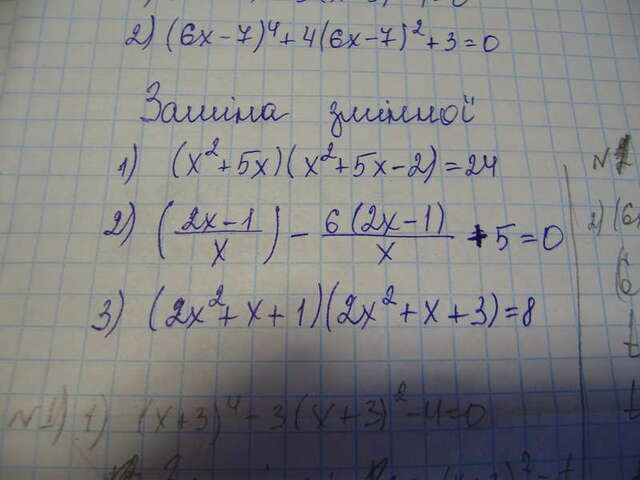 2) (6x-7)⁴+4(6x-7)²+3=0
Заміна змінної
1) (x²+5x)(x²+5x-2)=24
2) ((2x-1)/x) - 6(2x-1)/x + 5=0
3) (2x²+x+1)(2x²+x+3)=8
№1) 1) (x+3)⁴-3(x+3)²-4=0